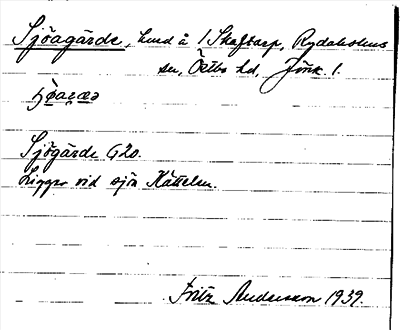 Sjöagärde, hmd å 1 Skaftarp, Rydaholms
sn, Östbo hd, Jönk. l.
Sjögärde G20.
Ligger vid sjön Hättelen.
Fritz Andersson 1939.